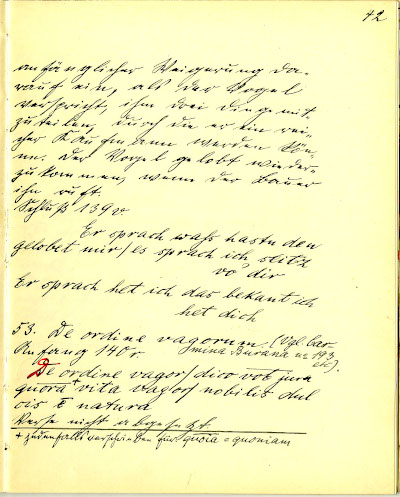 42
anfänglicher Weigerung da-
rauf ein, als der Vogel
verspricht, ihm drei Dinge mit-
zuteilen, durch die er ein rei-
cher Kaufmann werden kön-
ne. Der Vogel gelobt wieder-
zukommen, wenn der Bauer
ihn ruft.
Schluß 139v
Er sprach waß hastu den
gelobet mir / es sprach ich steltz
vo dir
Er sprach het ich das bekant ich
het dich
53. De ordine vagorum. (Vgl. Car-
Anfang 140r mina Burana nr 193
etc).
De ordine vagor / dico vob jura
quora + vita vagor / nobilis dul
cis e natura
Verse nicht abgesetzt
+ jedenfalls verschrieben für quoia = quoniam